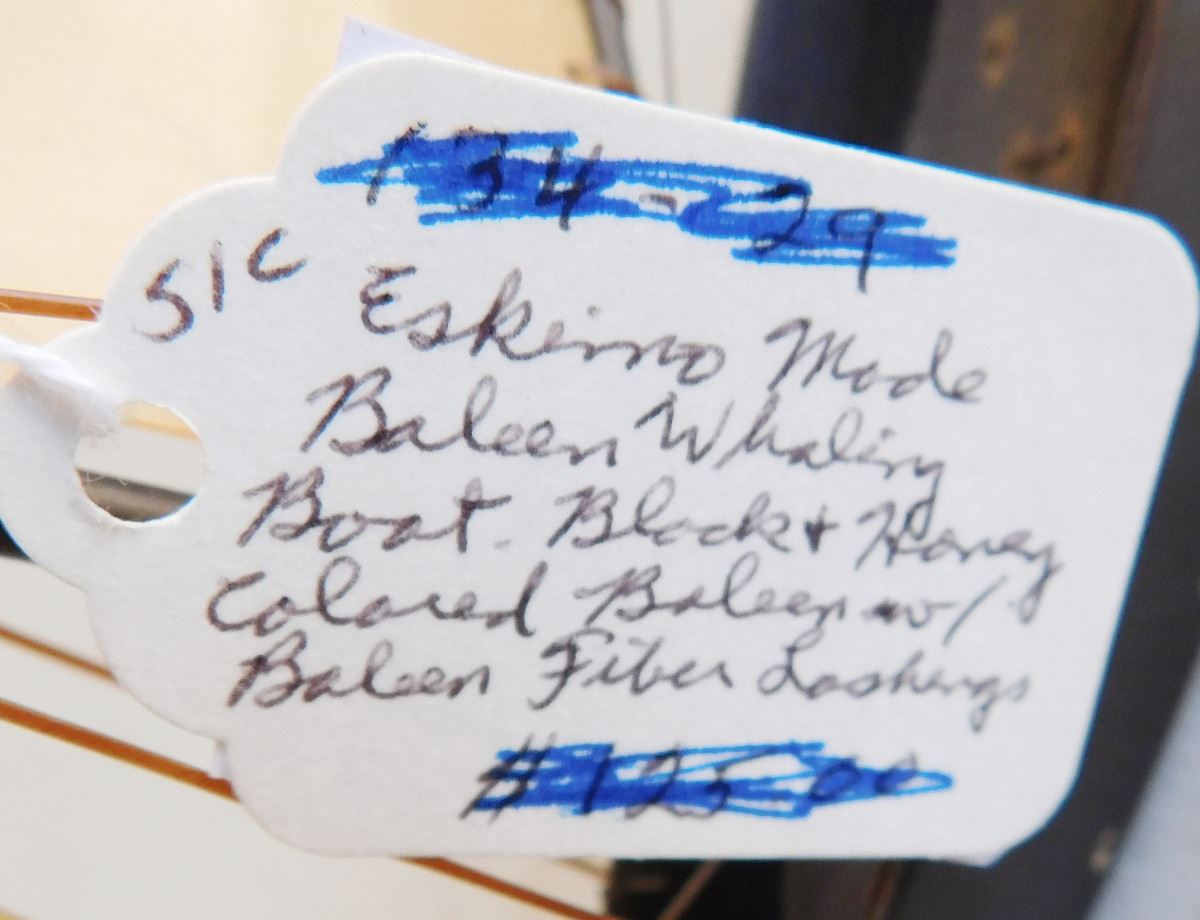 134-29
S1C
Eskimo Made
Baleen Whaling
Boat. Black + Honey
Colored Baleen w/
Baleen Fiber Lashings
$125.00